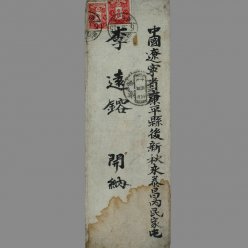 中國遼寧省康平縣後新秋來泰昌丙民家屯
李遠鎔 開納